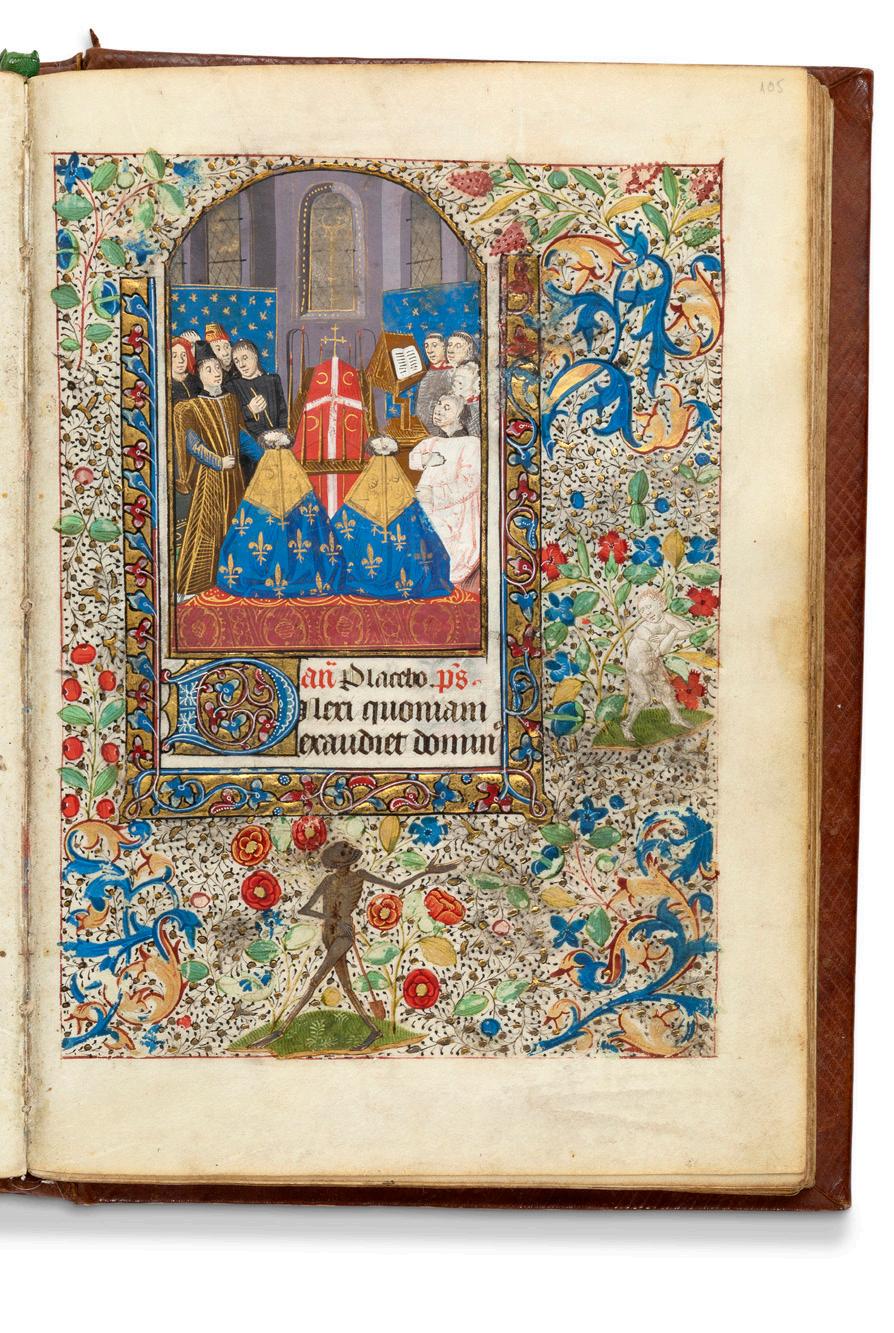 105
añ Placebo. ps.
Dilexi quoniam
exaudiet domin⁹